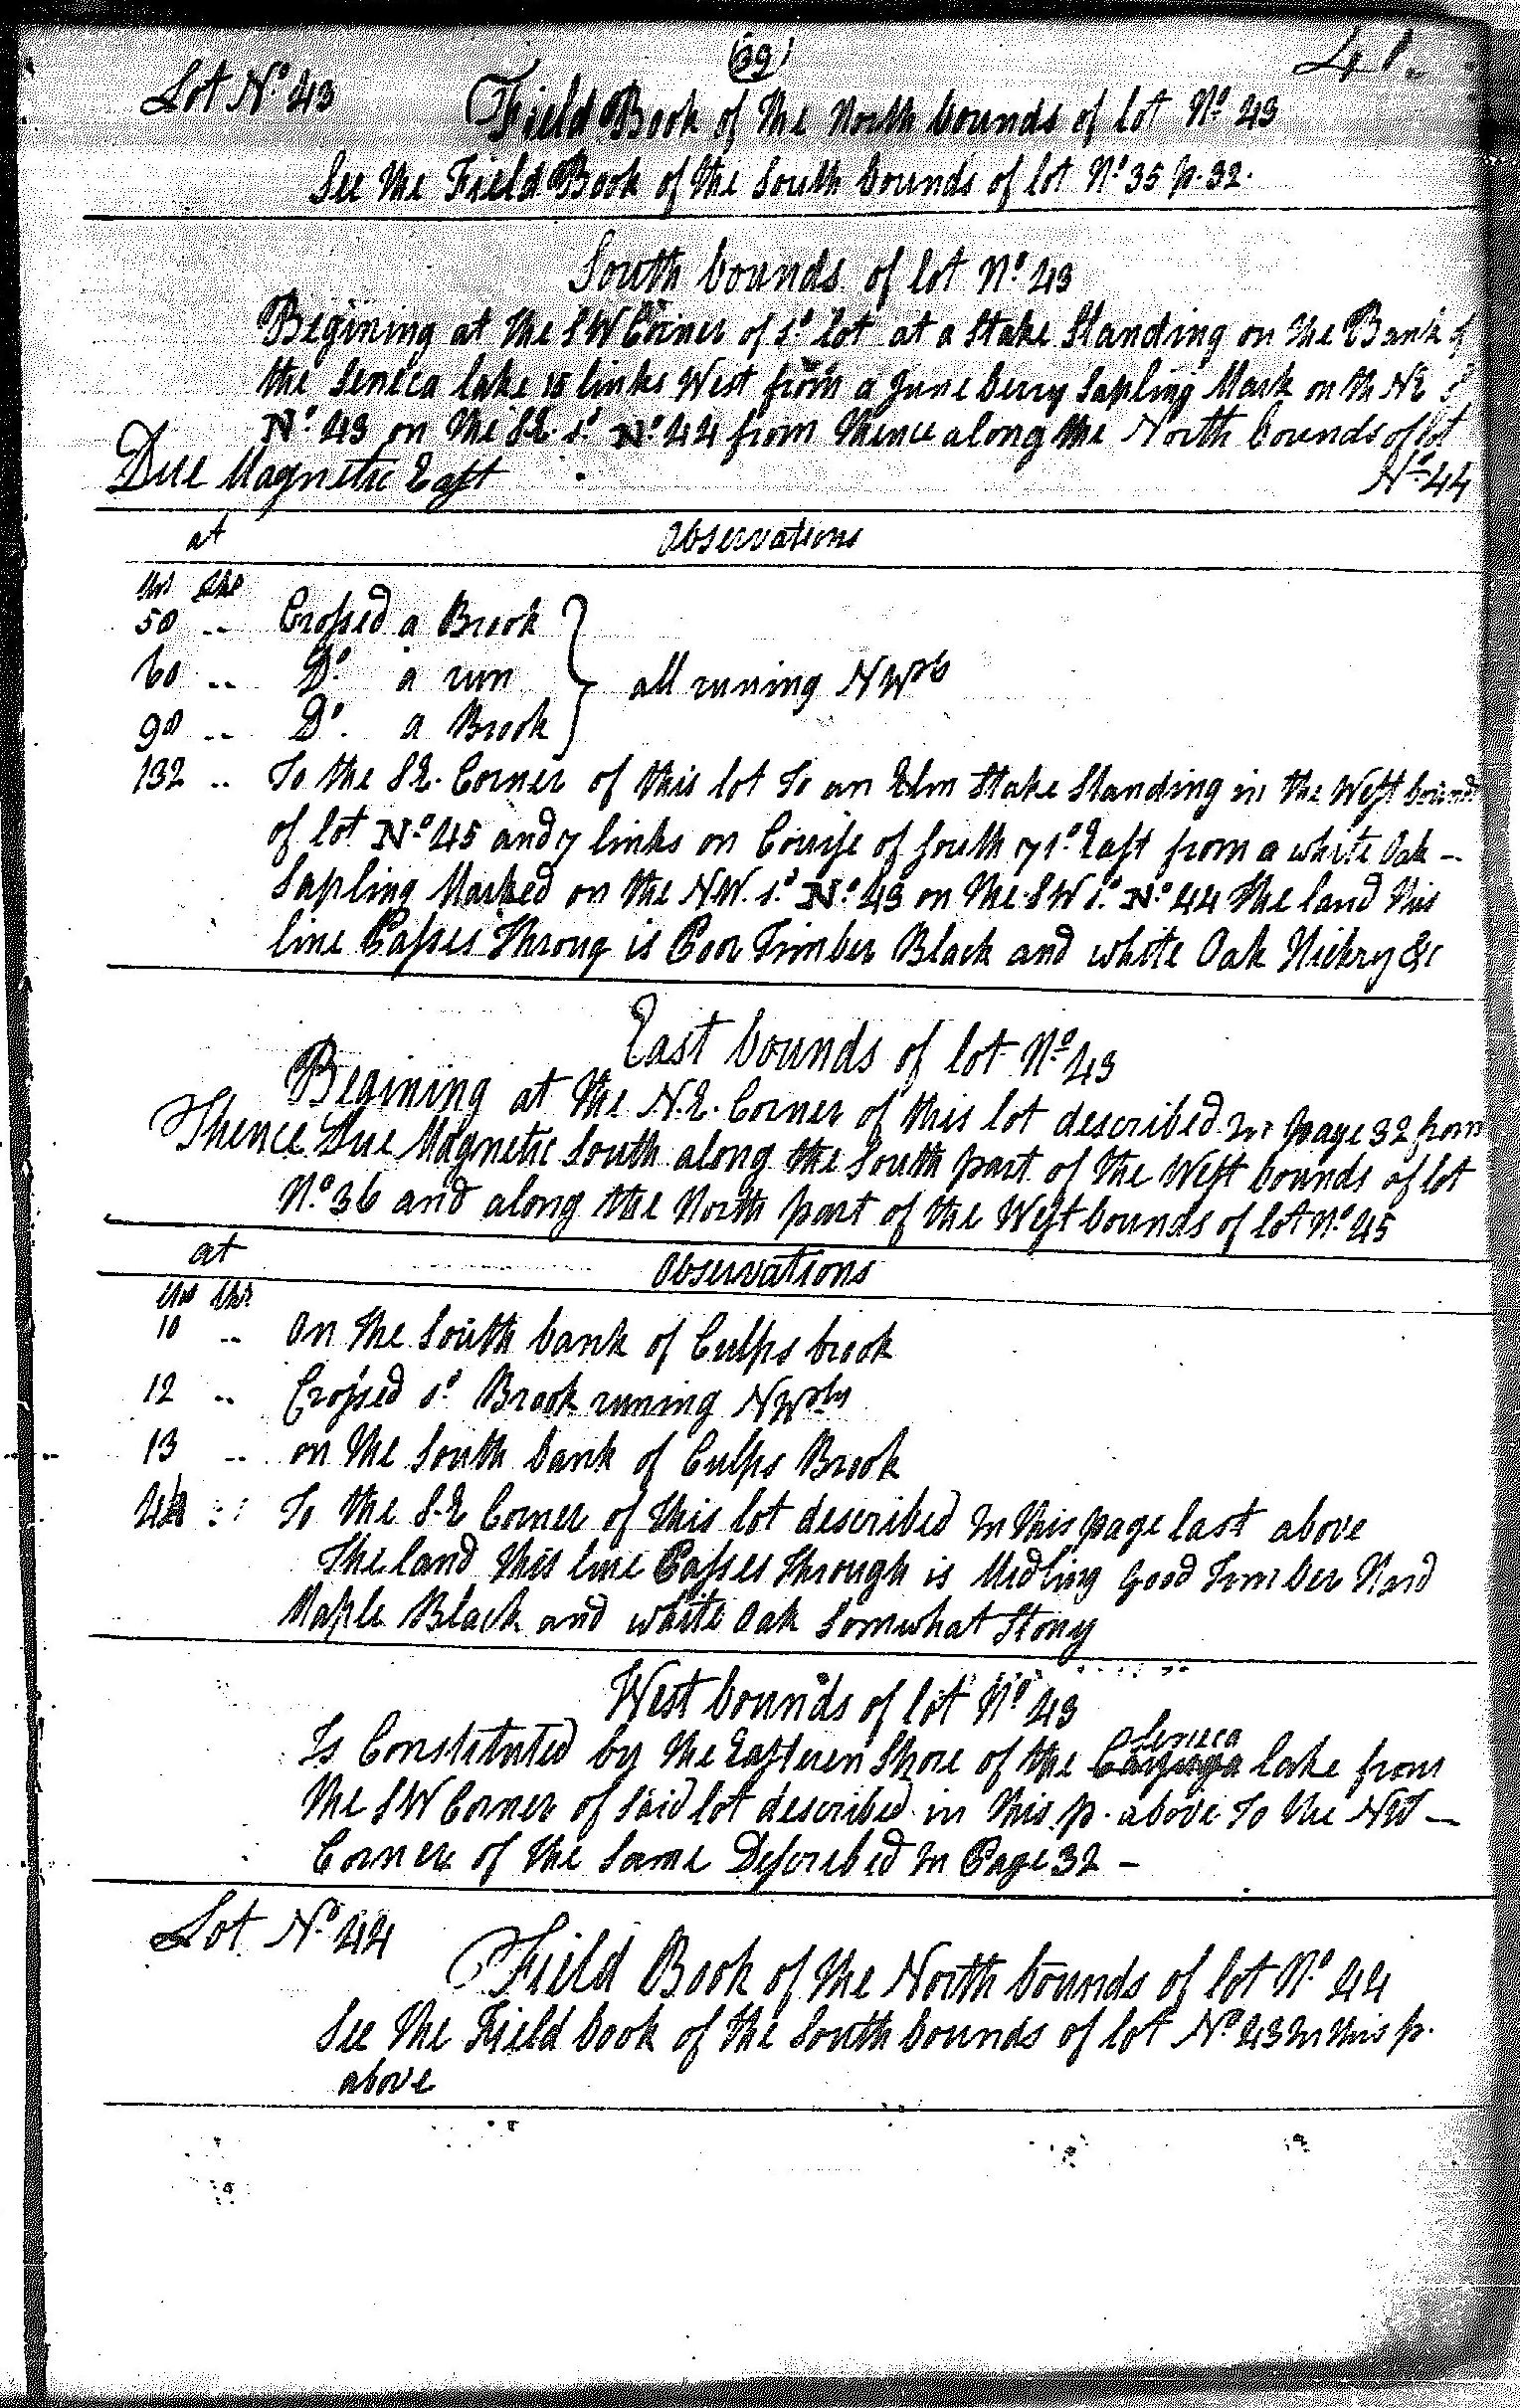 (39)
41.
Lot N.º 43
Field Book of the North bounds of lot N.º 43
See the Field Book of the South bounds of lot N.º 35 p. 32.
South bounds of lot N.º 43
Begining at the SW Corner of s.d lot at a Stake Standing on the Bank of
the Seneca lake 15 links West from a June berry Sapling Mark on th NE s.
N.º 43 on the SE. s.d N.º 44 from thence along the North bounds of lot
Due Magnetic East N.º 44
at Observations
50 .. Crossed a Brook
60 .. D.º a run } all runing NW
90 .. D.º a Brook
132 .. To the SE. Corner of this lot To an Elm Stake Standing in the West bounds
of lot N.º 45 and 7 links on Course of South 71.º East from a white Oak –
Sapling Marked on the NW. s.d N.º 43 on the SW s.d N.º 44 The land this
line Passes Throug is Poor Timber Black and white Oak Hickry &c
East bounds of lot N.º 43
Begining at the N.E. Corner of this lot described In page 32 from
Thence Due Magnetic South along the South part of the West bounds of lot
N.º 36 and along the North part of the West bounds of lot N.º 45
at Observations
10 .. On the South bank of Culps brook
12 .. Crossed s.d Brook runing NW
13 .. on the South bank of Culps Brook
To the S.E Corner of this lot described In this page last above
The land this line Passes Through is Midling Good Timber Hard
Maple Black and white Oak Somwhat Stony
West bounds of lot N.º 43
Seneca
Is Constituted by the Easteren Shore of the Cayuga lake from
the SW Corner of Said lot described in this p. above To the NW –
Corner of the Same Described In Page 32 –
Lot N.º 44
Field Book of the North bounds of lot N.º 44
See the Field book of the South bounds of lot N.º 43 In this p.
above